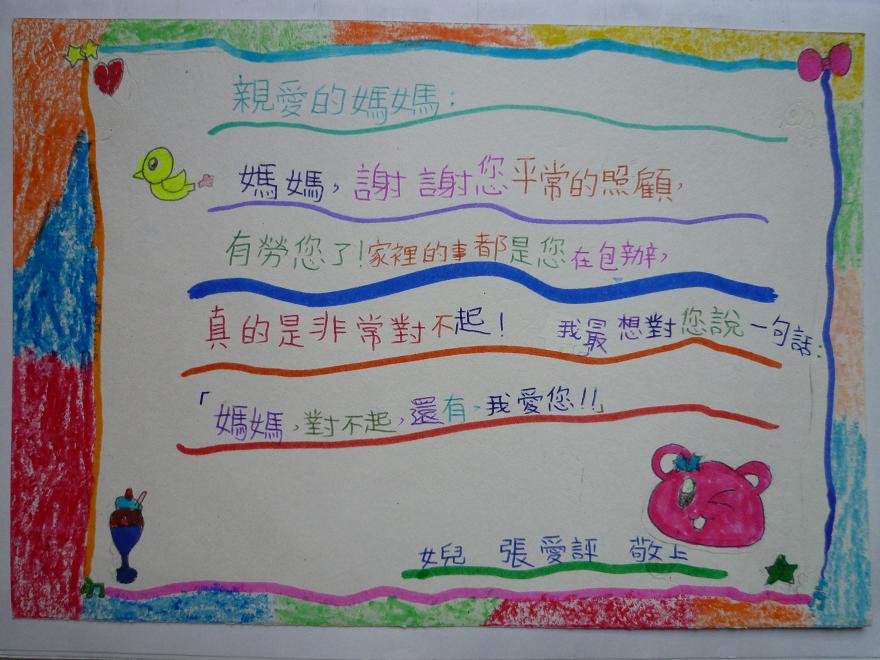 親愛的媽媽：
媽媽，謝謝您平常的照顧，
有勞您了！家裡的事都是您在包辦，
真的是非常對不起！ 我最想對您說一句話：
「媽媽，對不起，還有，我愛您！！」
女兒 張愛評 敬上